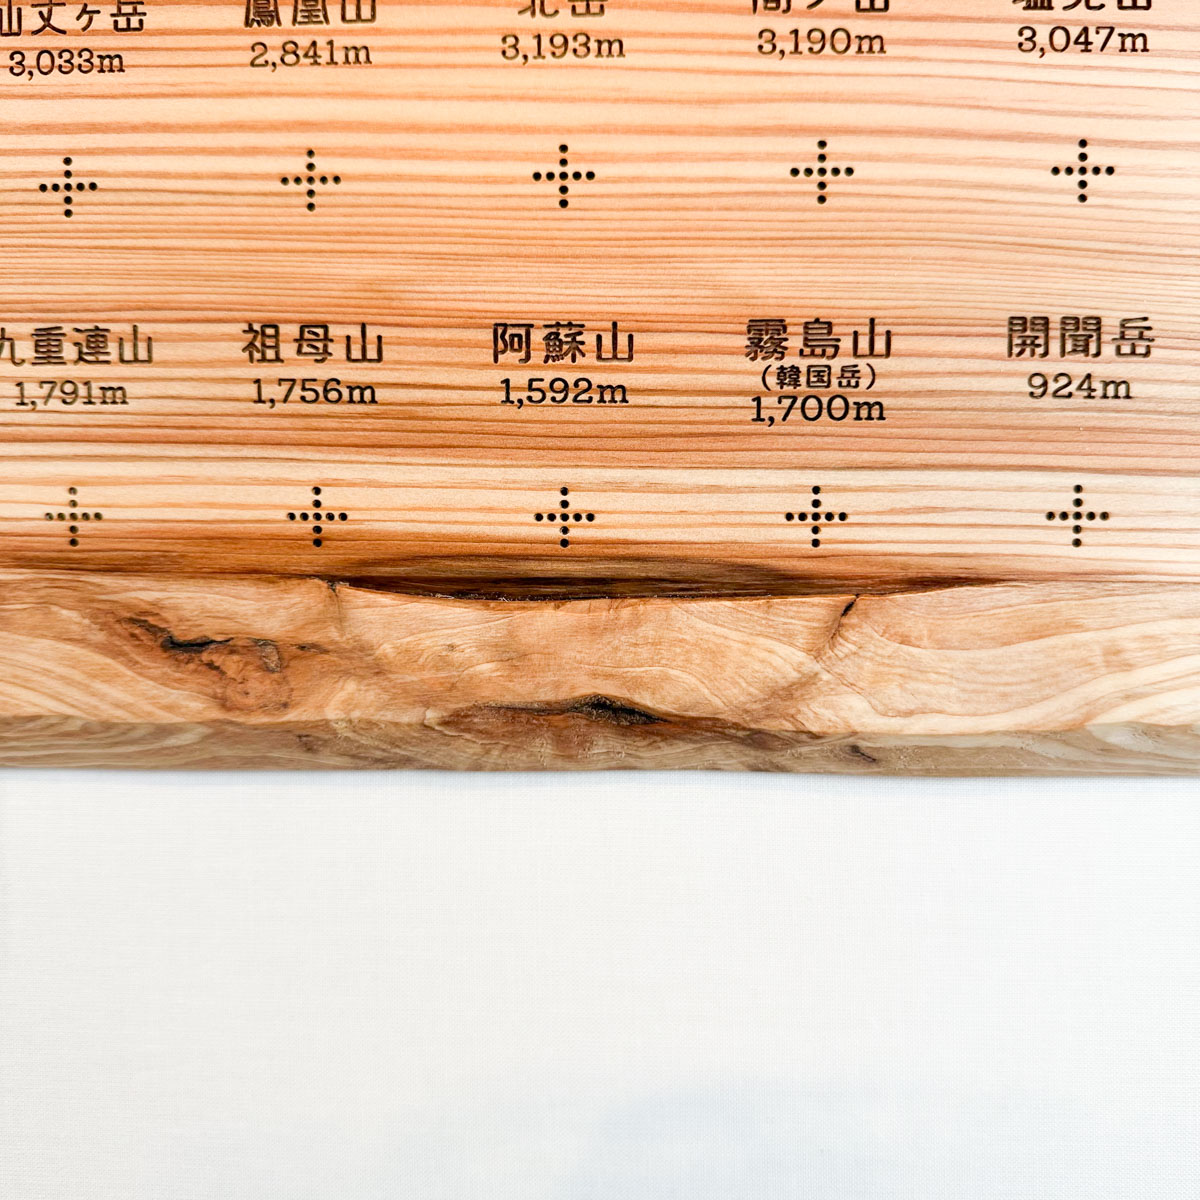 仙丈ヶ岳 鳳凰山 北岳 間ノ岳 塩見岳
3,033m 2,841m 3,193m 3,190m 3,047m
九重連山 祖母山 阿蘇山 霧島山 開聞岳
(韓国岳)
1,791m 1,756m 1,592m 1,700m 924m